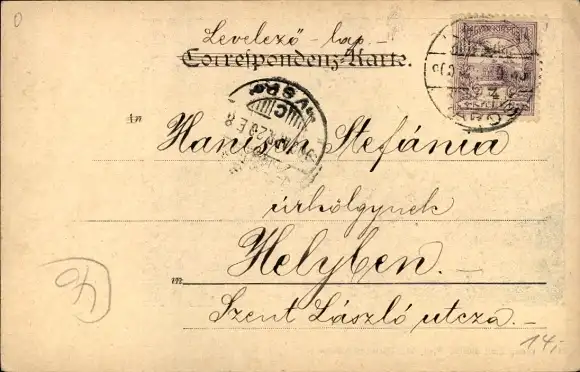 Levelező-lap.-
Correspondenz-Karte.
An Hanisch Stefánia
úrhölgynek
in Helyben.-
Szent László utcza.-
40
14,-